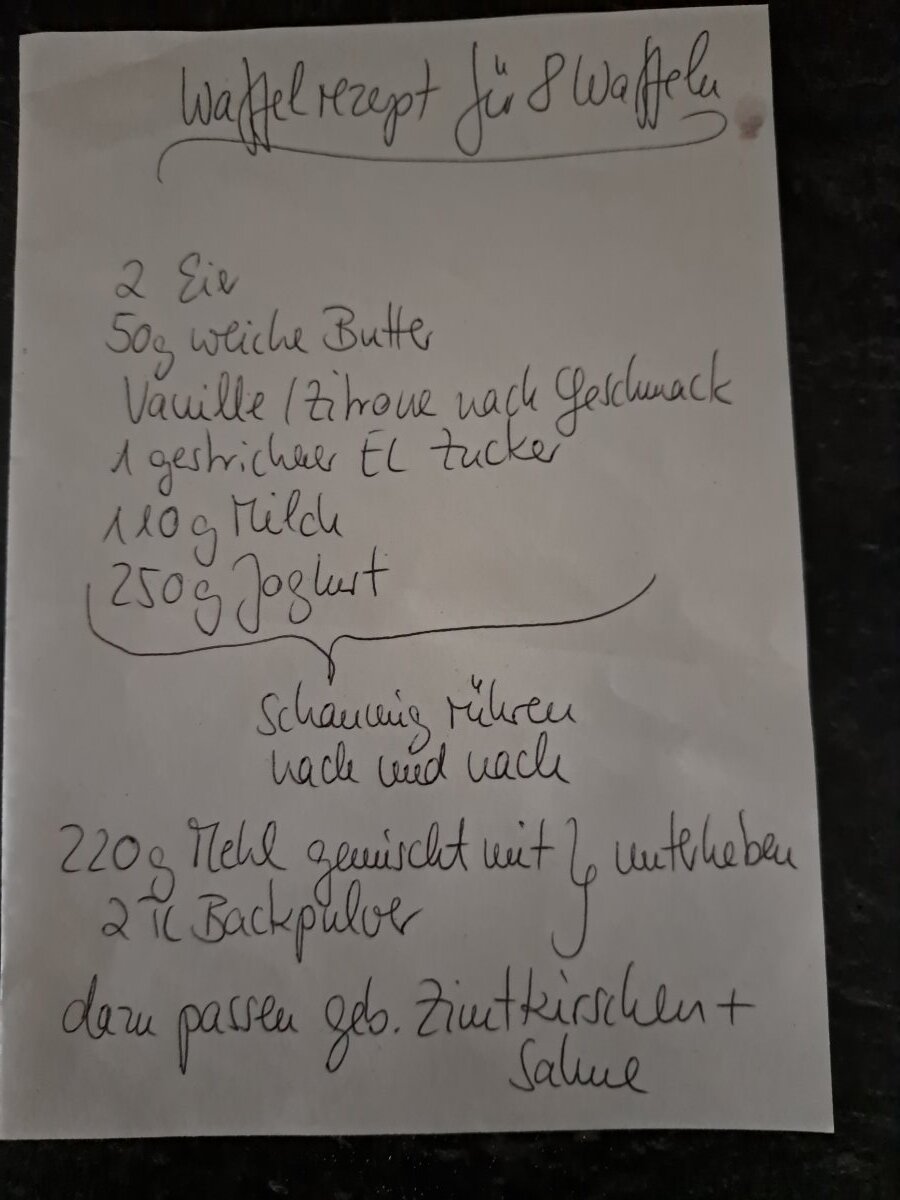 Waffelrezept für 8 Waffeln
2 Eier
50g weiche Butter
Vanille / Zitrone nach Geschmack
1 gestrichener EL Zucker
110g Milch
250g Joghurt
schaumig rühren
nach und nach
220g Mehl gemischt mit } unterheben
2 TL Backpulver
dazu passen geb. Zimtkirschen +
Sahne